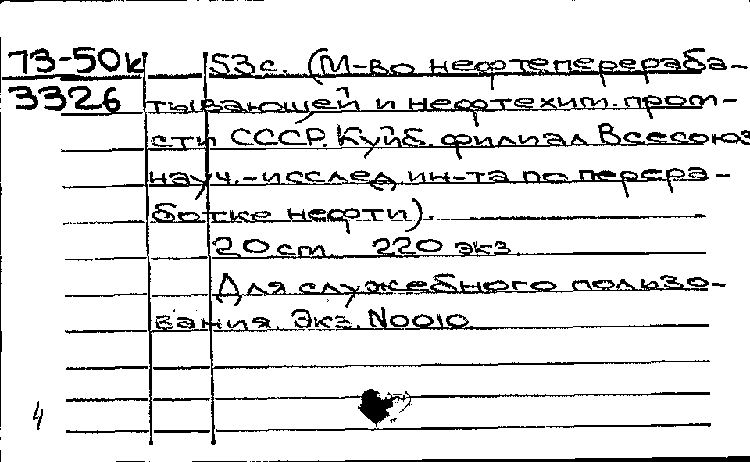 73-50к 53с. (М-во нефтеперераба-
3326 тывающей и нефтехим. пром-
сти СССР. Куйб. филиал Всесоюз
науч.-исслед. ин-та по перера-
ботке нефти).
20 см 220 экз.
Для служебного пользо-
вания. Экз. N0010
4